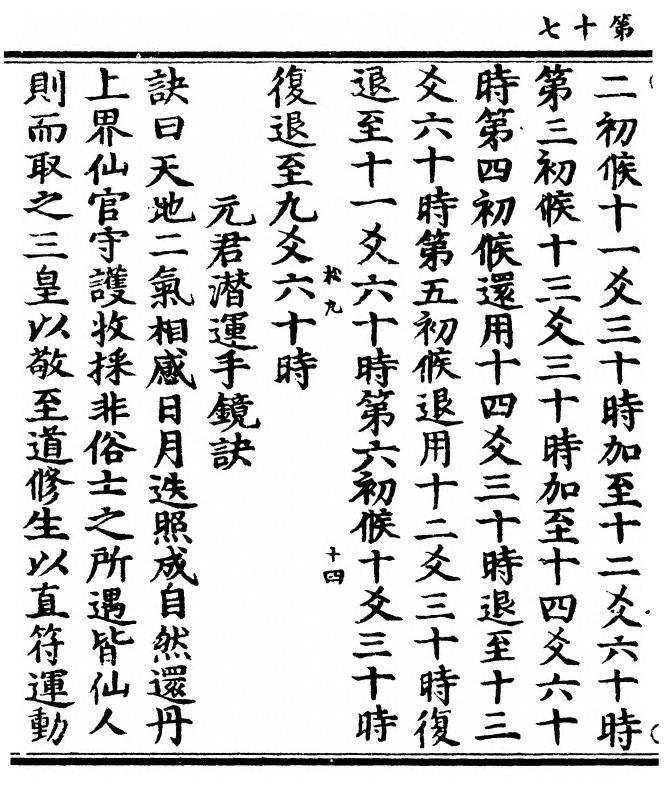 第十七
二初候十一爻三十時加至十二爻六十時
第三初候十三爻三十時加至十四爻六十
時第四初候還用十四爻三十時退至十三
爻六十時第五初候退用十二爻三十時復
退至十一爻六十時第六初候十爻三十時
松九
十四
復退至九爻六十時
元君潛運手鏡訣
訣曰天地二氣相感日月迭照成自然還丹
上界仙官守護收採非俗士之所遇皆仙人
則而取之三皇以敬至道修生以直符運動